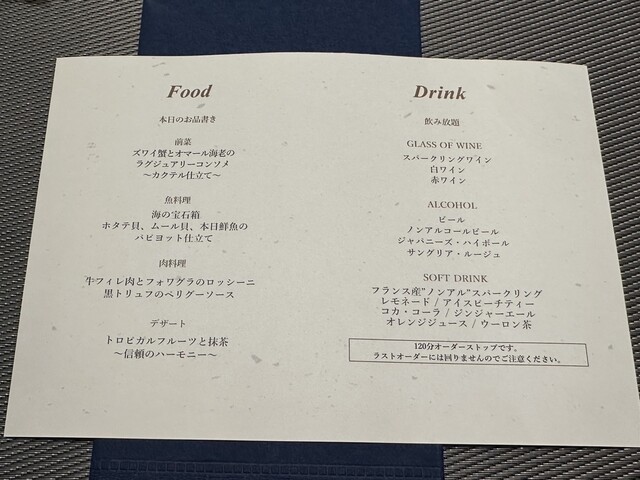 Food
本日のお品書き
前菜
ズワイ蟹とオマール海老の
ラグジュアリーコンソメ
～カクテル仕立て～
魚料理
海の宝石箱
ホタテ貝、ムール貝、本日鮮魚の
パピヨット仕立て
肉料理
牛フィレ肉とフォワグラのロッシーニ
黒トリュフのペリグーソース
デザート
トロピカルフルーツと抹茶
～信頼のハーモニー～
Drink
飲み放題
GLASS OF WINE
スパークリングワイン
白ワイン
赤ワイン
ALCOHOL
ビール
ノンアルコールビール
ジャパニーズ・ハイボール
サングリア・ルージュ
SOFT DRINK
フランス産"ノンアル"スパークリング
レモネード / アイスピーチティー
コカ・コーラ / ジンジャーエール
オレンジジュース / ウーロン茶
120分オーダーストップです。
ラストオーダーには回りませんのでご注意ください。